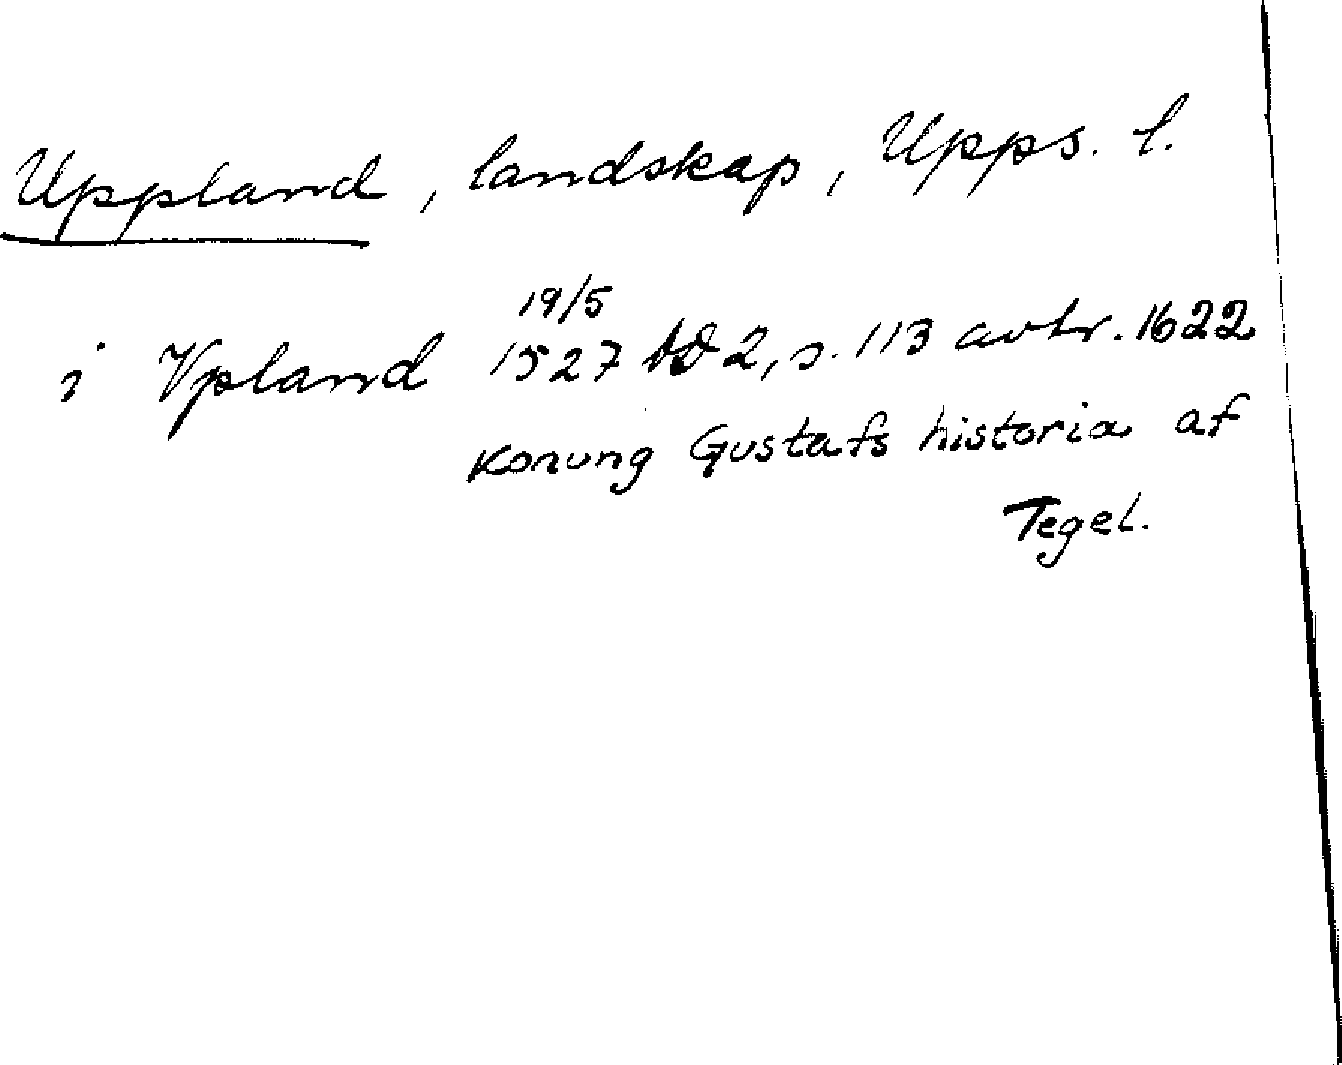 Uppland, landskap, Upps. l.
19/5
i Vpland 1527 DD 2, s. 113 avtr. 1622
Konung Gustafs historia af
Tegel.